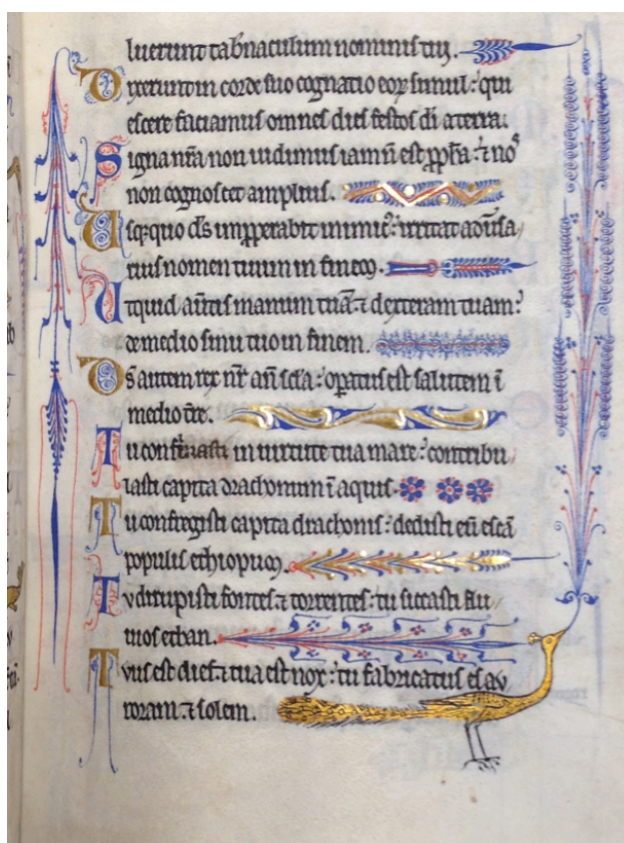 luerunt tabnaculum nominis tui.
Dixerunt in corde suo cognatio eoꝝ simul: qui
escere faciamus omnes dies festos di a terra.
Signa nr̄a non uidimus iam ñ est ꝓph̄a: ⁊ nos
non cognoscet amplius.
Usqꝫ quo ds̄ inꝓperabit inimic᷒: irritat aduersa
rius nomen tuum in finem.
Ut quid auertis manum tuā ⁊ dexteram tuam:
de medio sinu tuo in finem.
Ds̄ autem rex nr̄ an̄ scl̄a: operatus est salutem ī
medio terre.
Tu confirmasti in uirtute tua mare: contribu
lasti capita drachonum ī aquis.
Tu confregisti capita drachonis: dedisti eū escā
populis ethiopum.
Tu dirupisti fontes ⁊ torrentes: tu siccasti flu
uios ethan.
Tuus est dies ⁊ tua est nox: tu fabricatus es au
roram ⁊ solem.